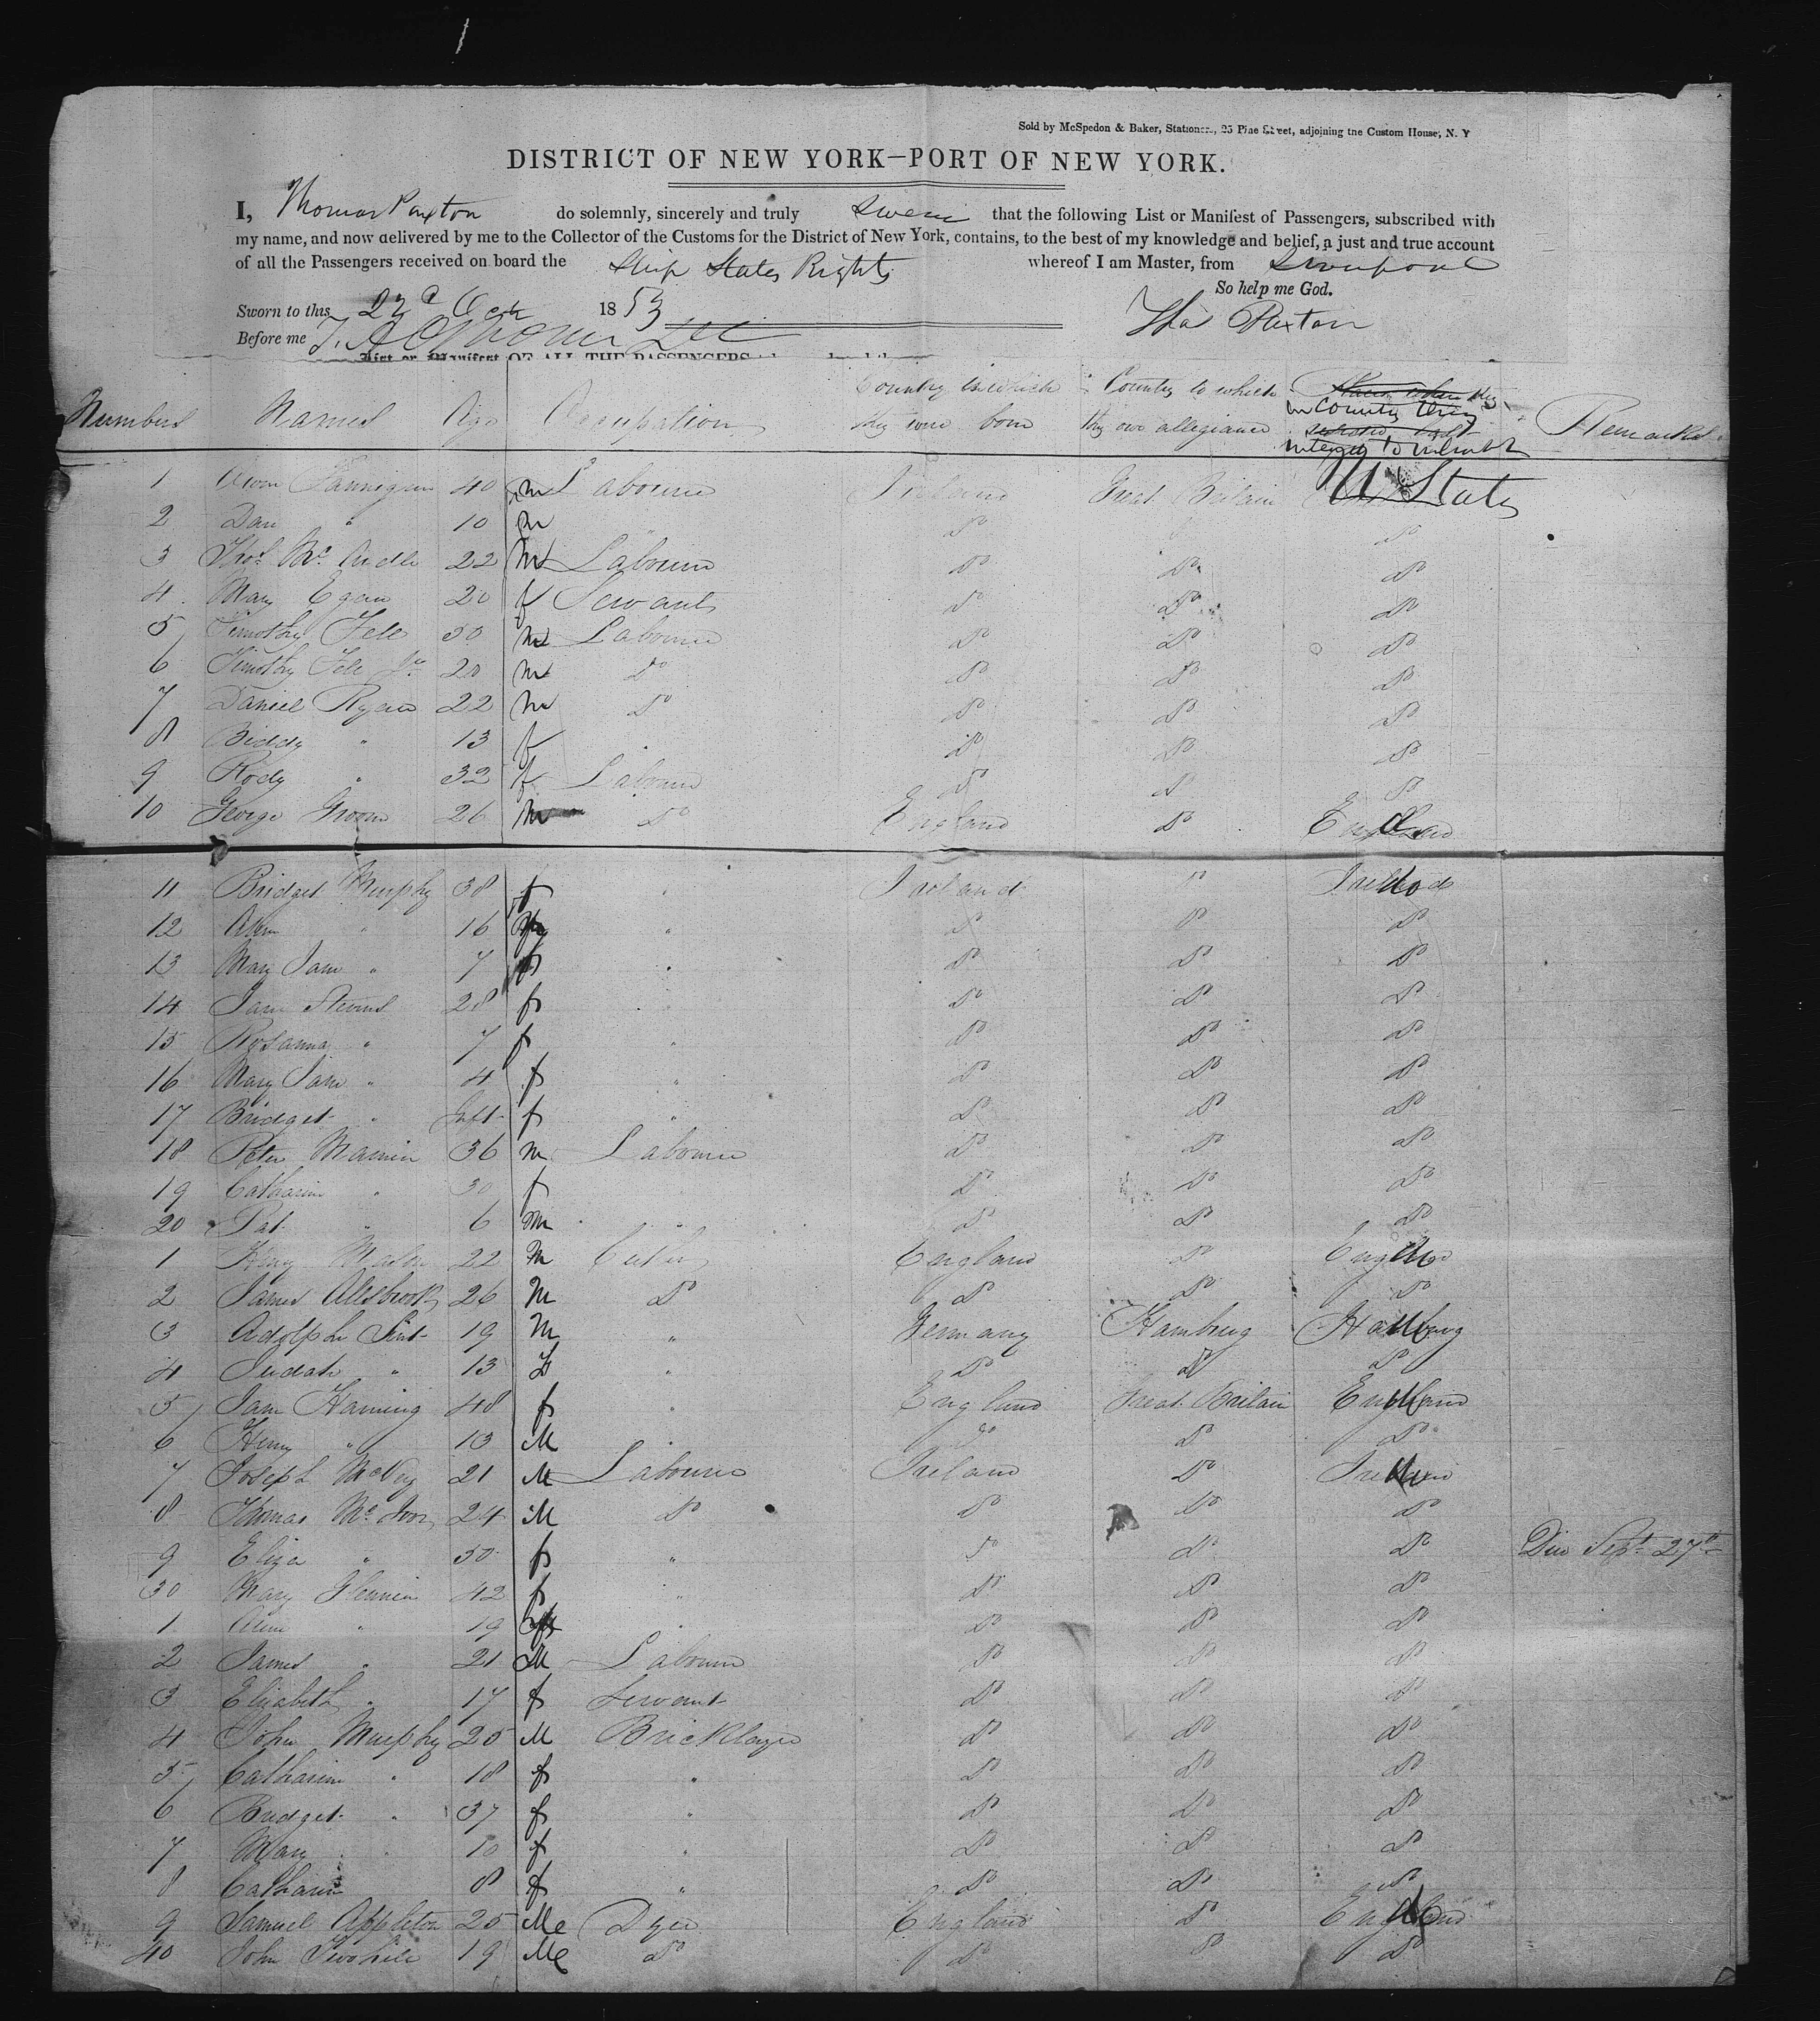 Sold by McSpedon & Baker, Stationers, 25 Pine Street, adjoining the Custom House, N. Y
DISTRICT OF NEW YORK—PORT OF NEW YORK.
I, Thomas Paxton do solemnly, sincerely and truly swear that the following List or Manifest of Passengers, subscribed with
my name, and now delivered by me to the Collector of the Customs for the District of New York, contains, to the best of my knowledge and belief, a just and true account
of all the Passengers received on board the Ship States Rights whereof I am Master, from Liverpool
So help me God.
Sworn to this 22d Oct 1853
Thos Paxton
Before me
List or Manifest OF ALL THE PASSENGERS
Numbers Names Age Occupation Country in which they were born Country to which they owe allegiance Country they intend to inhabit Remarks
1 Flannigan 40 m Labourer Ireland Great Britain U States
2 Dan " 10 m Do Do
3 Thos Mc Ardle 22 m Labourer Do Do Do
4 Mary Egan 20 f Servant Do Do Do
5 Timothy 50 m Labourer Do Do Do
6 Timothy Jr 20 m Do Do Do Do
7 Daniel Ryan 22 m Do Do Do Do
8 Biddy " 13 f Do Do Do
9 Rody " 32 f Labourer Do Do Do
10 George Groom 26 m Do England Do England
11 Bridget Murphy 38 f " Ireland Do Ireland
12 Ann " 16 " Do Do Do
13 Mary Jane " 7 f " Do Do Do
14 Jane Stevens 28 f Do Do Do
15 Rosanna " 7 f " Do Do Do
16 Mary Jane " 4 f " Do Do Do
17 Bridget " Inft f " Do Do Do
18 Peter 36 m Labourer Do Do Do
19 Catharine " 30 f Do Do Do
20 Pat " 6 m " Do Do Do
1 Henry 22 m England Do England
2 James Allsbrook 26 m Do Do Do Do
3 Adolph 19 m " Germany Hamburg Hamburg
4 " 13 f " Do Do Do
5 Jane Hanning 48 f " England Great Britain England
6 Henry " 13 M " Do Do Do
7 Joseph McVey 21 M Labourer Ireland Do Ireland
8 Thomas Mc 24 M Do Do Do Do
9 Eliza " 30 f " Do Do Do Died Sept 27th
30 Mary 42 f " Do Do Do
1 Ann " 19 f " Do Do Do
2 James " 21 M Labourer Do Do Do
3 Elizabeth " 17 f Servant Do Do Do
4 John Murphy 25 M Bricklayer Do Do Do
5 Catharine " 18 f " Do Do Do
6 Bridget " 37 f " Do Do Do
7 Mary " 10 f " Do Do Do
8 Catharine 8 f " Do Do Do
9 Samuel Appleton 25 M Dyer England Do England
40 John Twohill 19 M Do Do Do Do